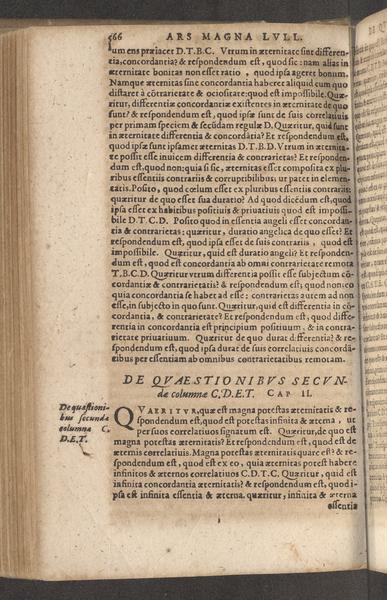 566 ARS MAGNA LVLL.
um ens præiacet D.T.B.C. Vtrum in æternitate sint differen-
tia, concordantia? & respondendum est, quod sic: nam alias in
æternitate bonitas non esset ratio, quod ipsa ageret bonum.
Namque æternitas sine concordantia haberet aliquid cum quo
distaret à cōtrarietate & ociositate: quod est impossibile. Quæ-
ritur, differentiæ concordantiæ existentes in æternitate de quo
sunt? & respondendum est, quod ipsæ sunt de suis correlatiuis
per primam speciem & secūdam regulæ D. Quæritur, quid sunt
in æternitate differentia & concordātia? Et respondendum est,
quod ipsæ sunt ipsamet æternitas D.T.B.D. Vtrum in æternita-
te possit esse inuicem differentia & contrarietas? Et responden-
dum est, quod non; quia si sic, æternitas esset composita ex plu-
ribus essentiis contrariis & corruptibilibus: ut patet in elemen-
tatis. Posito, quod cœlum esset ex pluribus essentiis contrariis:
quæritur de quo esset sua duratio? Ad quod dicēdum est, quod
ipsa esset ex habitibus positiuis & priuatiuis quod est impossi-
bile D.T.C.D. Posito quod in essentia angeli esset concordan-
tia & contrarietas: quæritur, duratio angelica de quo esset? Et
respondendum est, quod ipsa esset de suis contrariis, quod est
impossibile. Quæritur, quid est duratio angeli? Et responden-
dum est, quod est concordantia ab omni contrarietate remota
T.B.C.D. Quæritur vtrum differentia possit esse subiectum cō-
cordantiæ & contrarietatis? & respondendum est; quod non: eo
quia concordantia se habet ad esse: contrarietas autem ad non
esse, in subiecto in quo sunt. Quæritur, quid est differentia in cō-
cordantia, & contrarietate? Et respondendum est, quod diffe-
rentia in concordantia est principium positiuum, & in contra-
rietate priuatiuum. Quæritur de quo durat differentia? & re-
spondendum est, quod ipsa durat de suis correlatiuis concordā-
tibus per essentiam ab omnibus contrarietatibus remotam.
DE QVAESTIONIBVS SECVN-
dæ columnæ C.D.E.T. CAP II.
De quæstioni-
bus secundæ
columnæ C.
D.E.T.
QVAERITVR, quæ est magna potestas æternitatis & re-
spondendum est, quod est potestas infinita & æterna, ut
per suos correlatiuos signatum est. Quæritur, de quo est
magna potestas æternitatis? Et respondendum est, quod est de
æternis correlatiuis. Magna potestas æternitatis quare est? & re-
spondendum est, quod est ex eo, quia æternitas potest habere
infinitos & æternos correlatiuos C.D.T.C. Quæritur, quid est
infinita concordantia æternitatis? & respondendum est, quod i-
psa est infinita essentia & æterna. quæritur, infinita & æterna
essentia